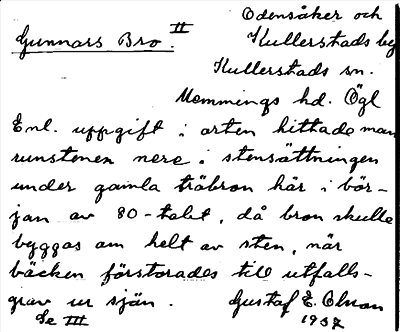 Odensåker och
Gunnars Bro. II
Hullerstads by
Hullerstads sn.
Memmings hd. Ögl
Enl. uppgift i orten hittade man
runstenen nere i stensättningen
under gamla träbron här i bör-
jan av 80-talet, då bron skulle
byggas om helt av sten, när
bäcken förstorades till utfalls-
grav ur sjön.
Gustaf E. Olsson
Se III
1937